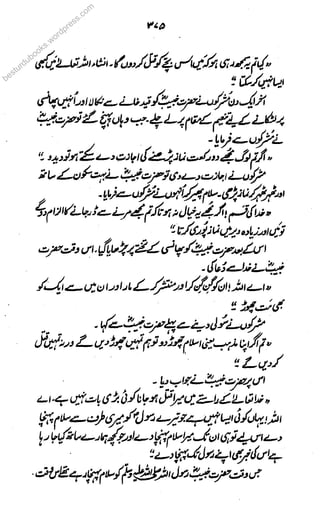 ۳۷۵
besturdubooks.wordpress.com
«کیا تم یہ سمجھ رہی ہو کہ میں اس بچے کو قتل کر دوں گا۔ انشاء اللہ تعالیٰ میں کبھی
ایسا نہیں کر سکتا»
آخر ایک دن مشرکوں نے حضرت خبیبؓ کو قید خانے سے نکالا اور انہیں پھانسی
پر لٹکانے کے لیے تنعیم کے مقام پر لے چلے۔ جب وہاں پہنچ گئے تو حضرت خبیبؓ
نے مشرکوں سے فرمایا۔
«اگر تم لوگ مجھے دو رکعت نماز پڑھنے کی اجازت دے سکتے ہو تو دیدو»
مشرکوں نے اجازت دے دی تو حضرت خبیبؓ نے بہت سکون کے ساتھ
اور ٹھہر ٹھہر کر نماز پڑھی۔ سلام پھیر کر انہوں نے مشرکوں سے فرمایا۔
«خدا کی قسم! اگر مجھے یہ خیال نہ ہوتا کہ تم مجھے مرنے سے ڈر جانے کا الزام دو گے
تو میں اور زیادہ دیر میں نماز پوری کرتا»
اس کے بعد حضرت خبیبؓ کو پھانسی کے تختے پر چڑھایا گیا۔ اس وقت حضرت
خبیبؓ نے خدا سے دُعا کی۔
«اے اللہ! ان کو گن گن کر اور منتشر کر کے مار اور ان میں سے ایک کو
بھی مت چھوڑ»
مشرکوں نے سُولی دینے سے پہلے حضرت خبیبؓ سے کہا۔
«تم اگر اپنا مذہب یعنی اسلام چھوڑ دو تو ہم تمہیں چھوڑ دیں گے ورنہ تمہیں قتل
کر دیں گے»
اس پر حضرت خبیبؓ نے جواب دیا۔
«خدا تعالیٰ کے راستے میں میرا قتل ہو جانا کوئی بڑی بات نہیں ہے۔ اے
اللہ! یہاں کوئی ایسا نہیں ہے جو تیرے رسولؐ کو میری طرف سے سلام پہنچا
دے اس لیے تو ہی ان تک میرا سلام پہنچا دے اور جو کچھ ہمارے ساتھ کیا جا رہا
ہے اس کی خبر بھی اپنے رسولؐ تک پہنچا دے»
جس وقت حضرت خبیبؓ رسول اللہ صلی اللہ علیہ وسلم کو سلام پہنچا رہے تھے اس وقت